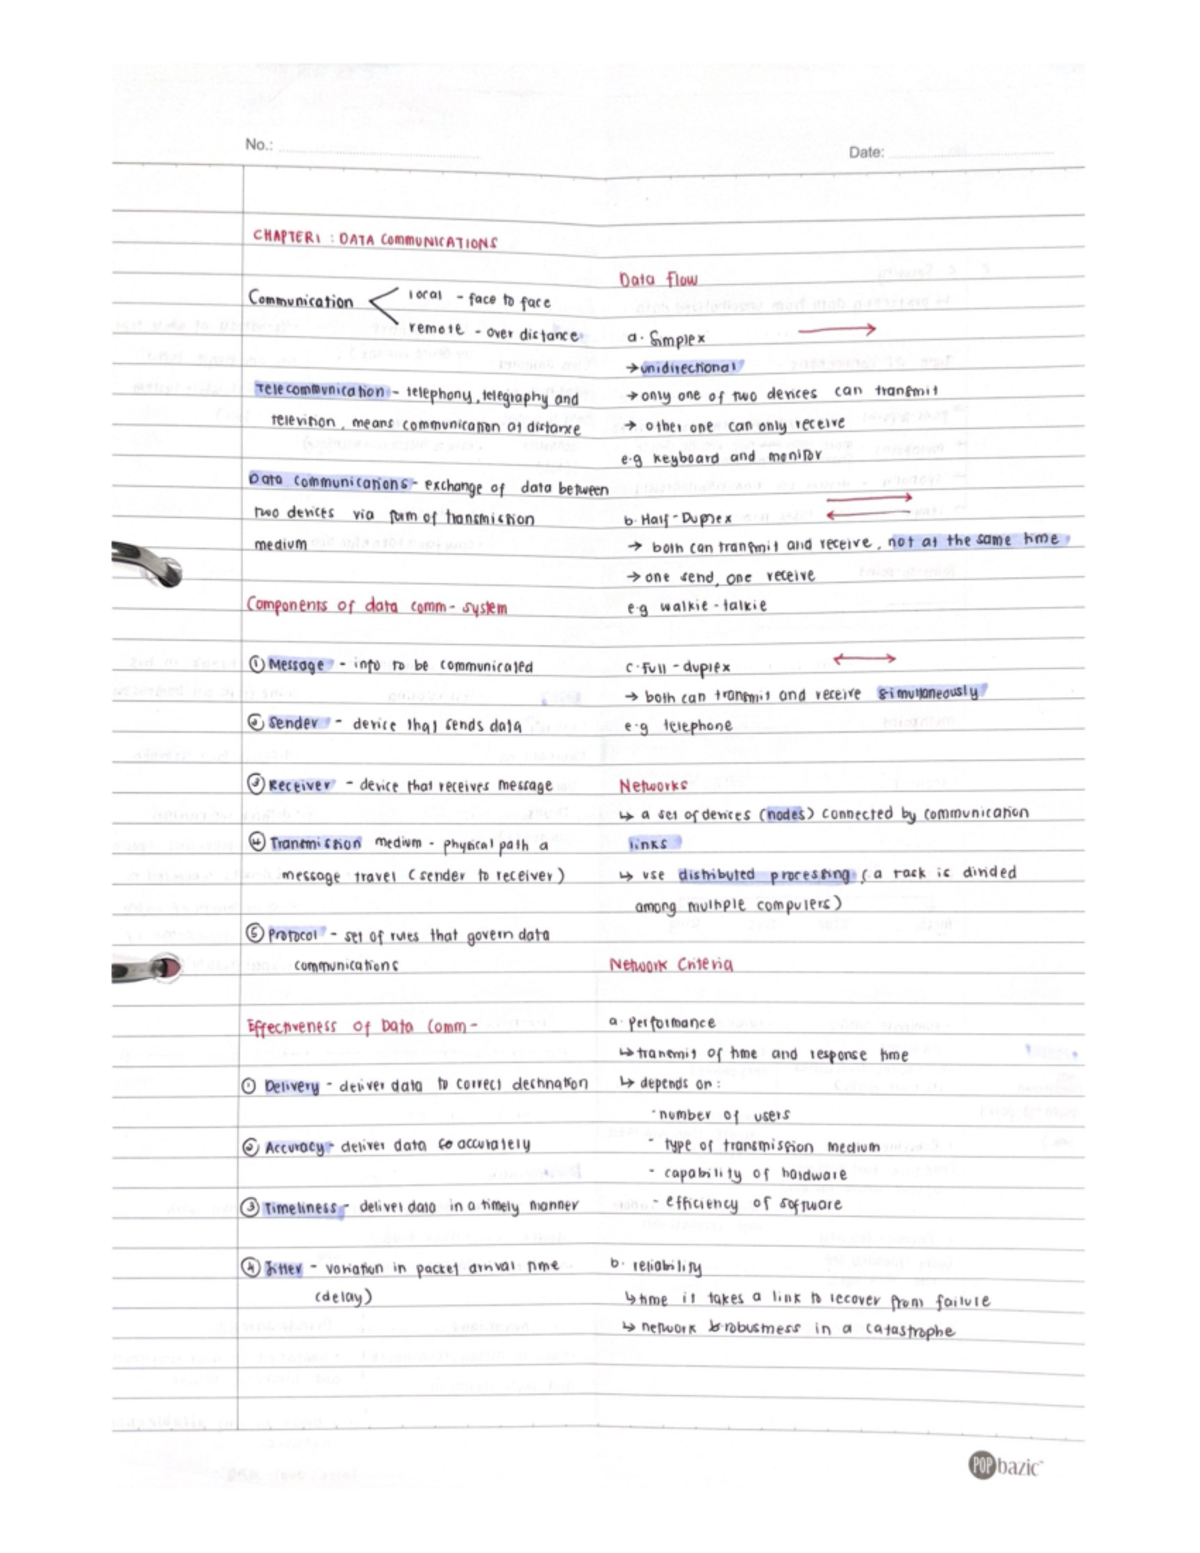 No.:
Date:
CHAPTER 1 : DATA COMMUNICATIONS
Communication
local - face to face
remote - over distance
Telecommunication - telephony, telegraphy and
television, means communication at distance
Data communications - exchange of data between
two devices via form of transmission
medium
Components of data comm- system
① Message - info to be communicated
② Sender - device that sends data
③ Receiver - device that receives message
④ Transmission medium - physical path a
message travel (sender to receiver)
⑤ Protocol - set of rules that govern data
communications
Effectiveness of Data Comm-
① Delivery - deliver data to correct destination
② Accuracy - deliver data accurately
③ Timeliness - deliver data in a timely manner
④ Jitter - variation in packet arrival time
(delay)
Data flow
a. Simplex →
→ unidirectional
→ only one of two devices can transmit
→ other one can only receive
e.g keyboard and monitor
b. Half-Duplex
→ both can transmit and receive, not at the same time
→ one send, one receive
e.g walkie-talkie
c. Full-duplex ↔
→ both can transmit and receive simultaneously
e.g telephone
Networks
↳ a set of devices (nodes) connected by communication
links
↳ use distributed processing (a task is divided
among multiple computers)
Network Criteria
a. performance
↳ transmit of time and response time
↳ depends on:
· number of users
- type of transmission medium
- capability of hardware
- efficiency of software
b. reliability
↳ time it takes a link to recover from failure
↳ network robustness in a catastrophe
POPbazic